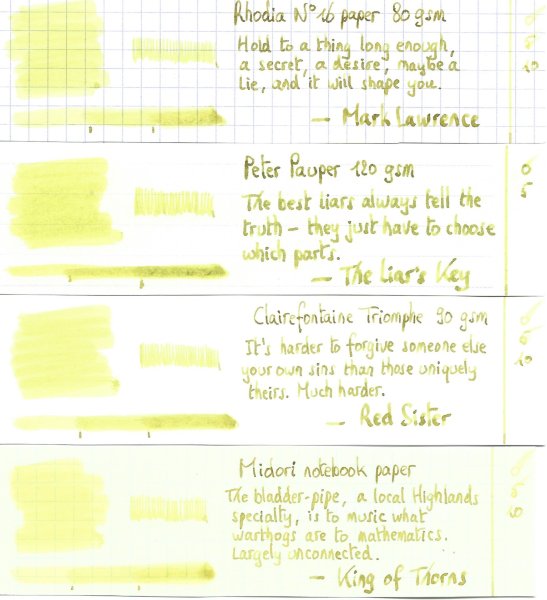 Rhodia N°16 paper 80 gsm
Hold to a thing long enough,
a secret, a desire, maybe a
lie, and it will shape you.
— Mark Lawrence
0
5
10
Peter Pauper 120 gsm
The best liars always tell the
truth – they just have to choose
which parts.
— The Liar's Key
0
5
Clairefontaine Triomphe 90 gsm
It's harder to forgive someone else
your own sins than those uniquely
theirs. Much harder.
— Red Sister
0
5
10
Midori notebook paper
The bladder-pipe, a local Highlands
specialty, is to music what
warthogs are to mathematics.
Largely unconnected.
— King of Thorns